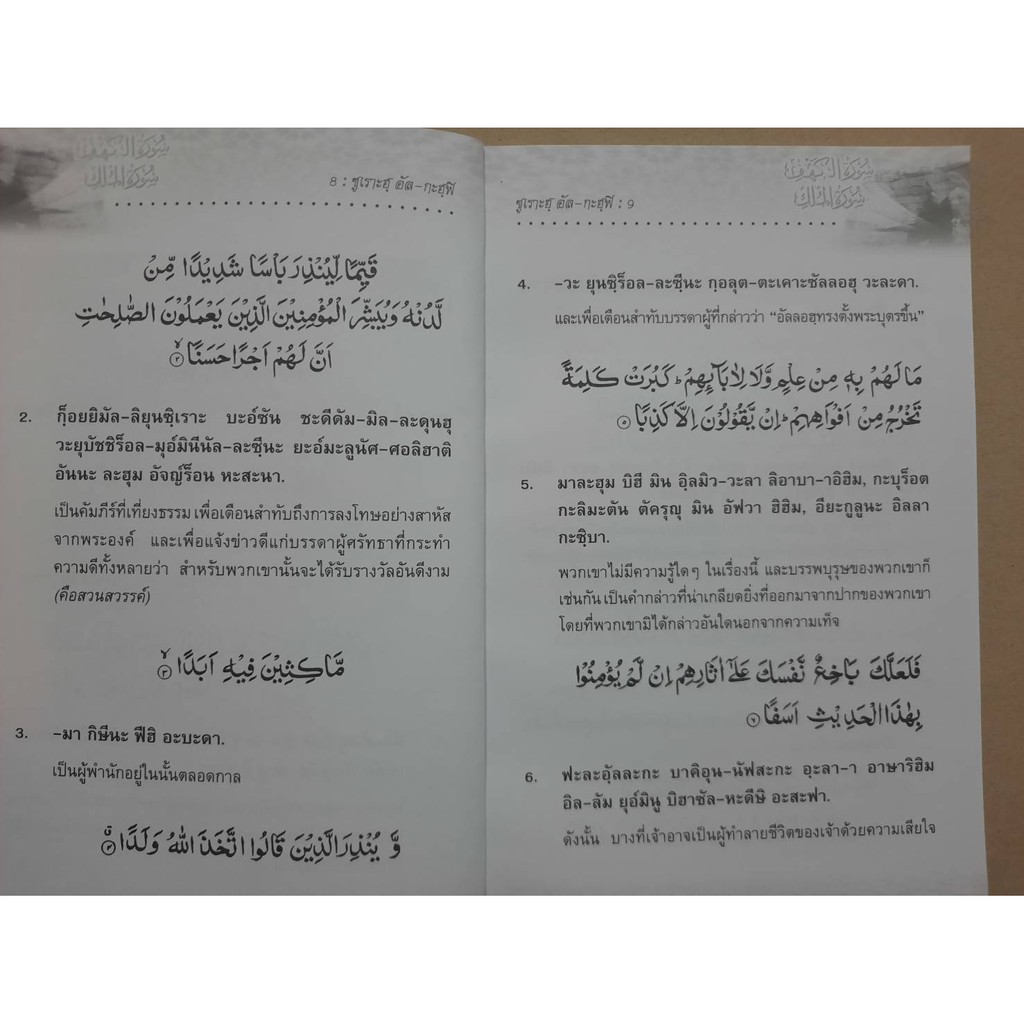 سورة الكهف
سورة الملك
8 : ซูเราะฮฺ อัล-กะฮฺฟิ
قَيِّمًا لِّيُنْذِرَ بَاْسًا شَدِيْدًا مِّنْ
لَّدُنْهُ وَيُبَشِّرَ الْمُؤْمِنِيْنَ الَّذِيْنَ يَعْمَلُوْنَ الصّٰلِحٰتِ
اَنَّ لَهُمْ اَجْرًا حَسَنًا ۙ٢
2. ก็อยยิมัล-ลิยุนซิเราะ บะอ์ซัน ชะดีดัม-มิล-ละดุนฮุ
วะยุบัชชิร็อล-มุอ์มินีนัล-ละซีนะ ยะอ์มะลูนัศ-ศอลิฮาติ
อันนะ ละฮุม อัจญ์ร็อน หะสะนา.
เป็นคัมภีร์ที่เที่ยงธรรม เพื่อเตือนสำทับถึงการลงโทษอย่างสาหัส
จากพระองค์ และเพื่อแจ้งข่าวดีแก่บรรดาผู้ศรัทธาที่กระทำ
ความดีทั้งหลายว่า สำหรับพวกเขานั้นจะได้รับรางวัลอันดีงาม
(คือสวนสวรรค์)
مَّاكِثِيْنَ فِيْهِ اَبَدًا ۙ٣
3. -มา กิษีนะ ฟีฮิ อะบะดา.
เป็นผู้พำนักอยู่ในนั้นตลอดกาล
وَّ يُنْذِرَ الَّذِيْنَ قَالُوا اتَّخَذَ اللّٰهُ وَلَدًا
سورة الكهف
سورة الملك
ซูเราะฮฺ อัล-กะฮฺฟิ : 9
4. -วะ ยุนซิร็อล-ละซีนะ กฺอลุต-ตะเคาะซัลลอฮุ วะละดา.
และเพื่อเตือนสำทับบรรดาผู้ที่กล่าวว่า “อัลลอฮฺทรงตั้งพระบุตรขึ้น”
مَا لَهُمْ بِهٖ مِنْ عِلْمٍ وَّلَا لِاٰبَآىِٕهِمْ ؕ كَبُرَتْ كَلِمَةً
تَخْرُجُ مِنْ اَفْوَاهِهِمْ ؕ اِنْ يَّقُوْلُوْنَ اِلَّا كَذِبًا ٥
5. มาละฮุม บิฮี มิน อิลมิว-วะลา ลิอาบา-าอิฮิม, กะบุร็อต
กะลิมะตัน ตัครุญุ มิน อัฟวา ฮิฮิม, อียะกูลูนะ อิลลา
กะซิบา.
พวกเขาไม่มีความรู้ใดๆ ในเรื่องนี้ และบรรพบุรุษของพวกเขาก็
เช่นกัน เป็นคำกล่าวที่น่าเกลียดยิ่งที่ออกมาจากปากของพวกเขา
โดยที่พวกเขามิได้กล่าวอันใดนอกจากความเท็จ
فَلَعَلَّكَ بَاخِعٌ نَّفْسَكَ عَلٰۤى اٰثَارِهِمْ اِنْ لَّمْ يُؤْمِنُوْا
بِهٰذَا الْحَدِيْثِ اَسَفًا
6. ฟะละอัลละกะ บาคิอุน-นัฟสะกะ อะลา-า อาษาริฮิม
อิล-ลัม ยุอ์มินู บิฮาซัล-หะดีษิ อะสะฟา.
ดังนั้น บางทีเจ้าอาจเป็นผู้ทำลายชีวิตของเจ้าด้วยความเสียใจ